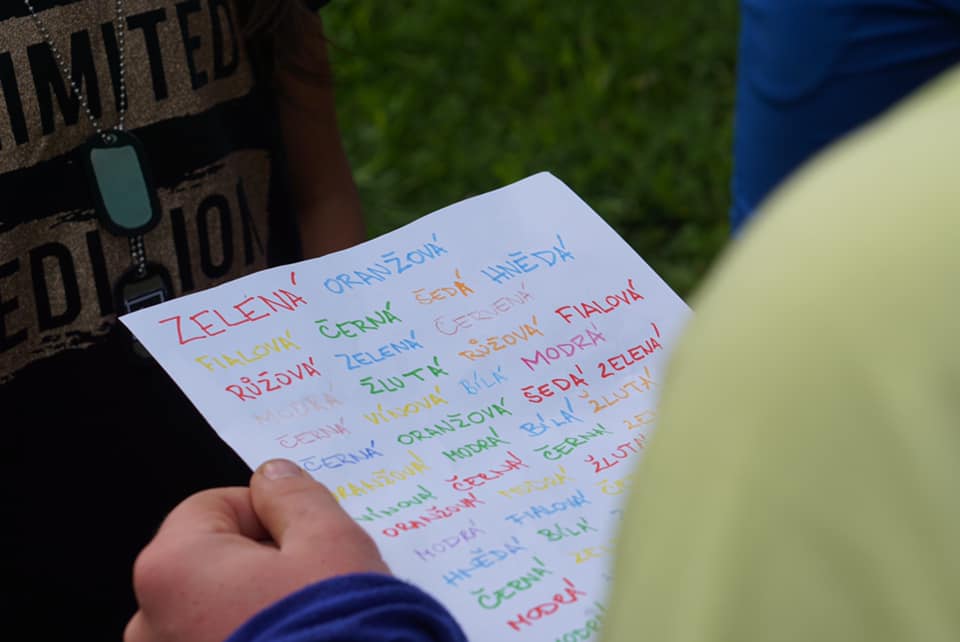 IMITED
EDITION
ZELENÁ ORANŽOVÁ HNĚDÁ
FIALOVÁ ČERNÁ ŠEDÁ
RŮŽOVÁ ZELENÁ ČERVENÁ
MODRÁ ŽLUTÁ RŮŽOVÁ FIALOVÁ
ČERNÁ VÍNOVÁ BÍLÁ MODRÁ
ČERNÁ ORANŽOVÁ ŠEDÁ ZELENÁ
ORANŽOVÁ MODRÁ BÍLÁ ŽLUTÁ
VÍNOVÁ ČERNÁ ČERNÁ
ORANŽOVÁ MODRÁ ŽLUTÁ
MODRÁ FIALOVÁ
HNĚDÁ BÍLÁ
ČERNÁ
MODRÁ
MODRÁ